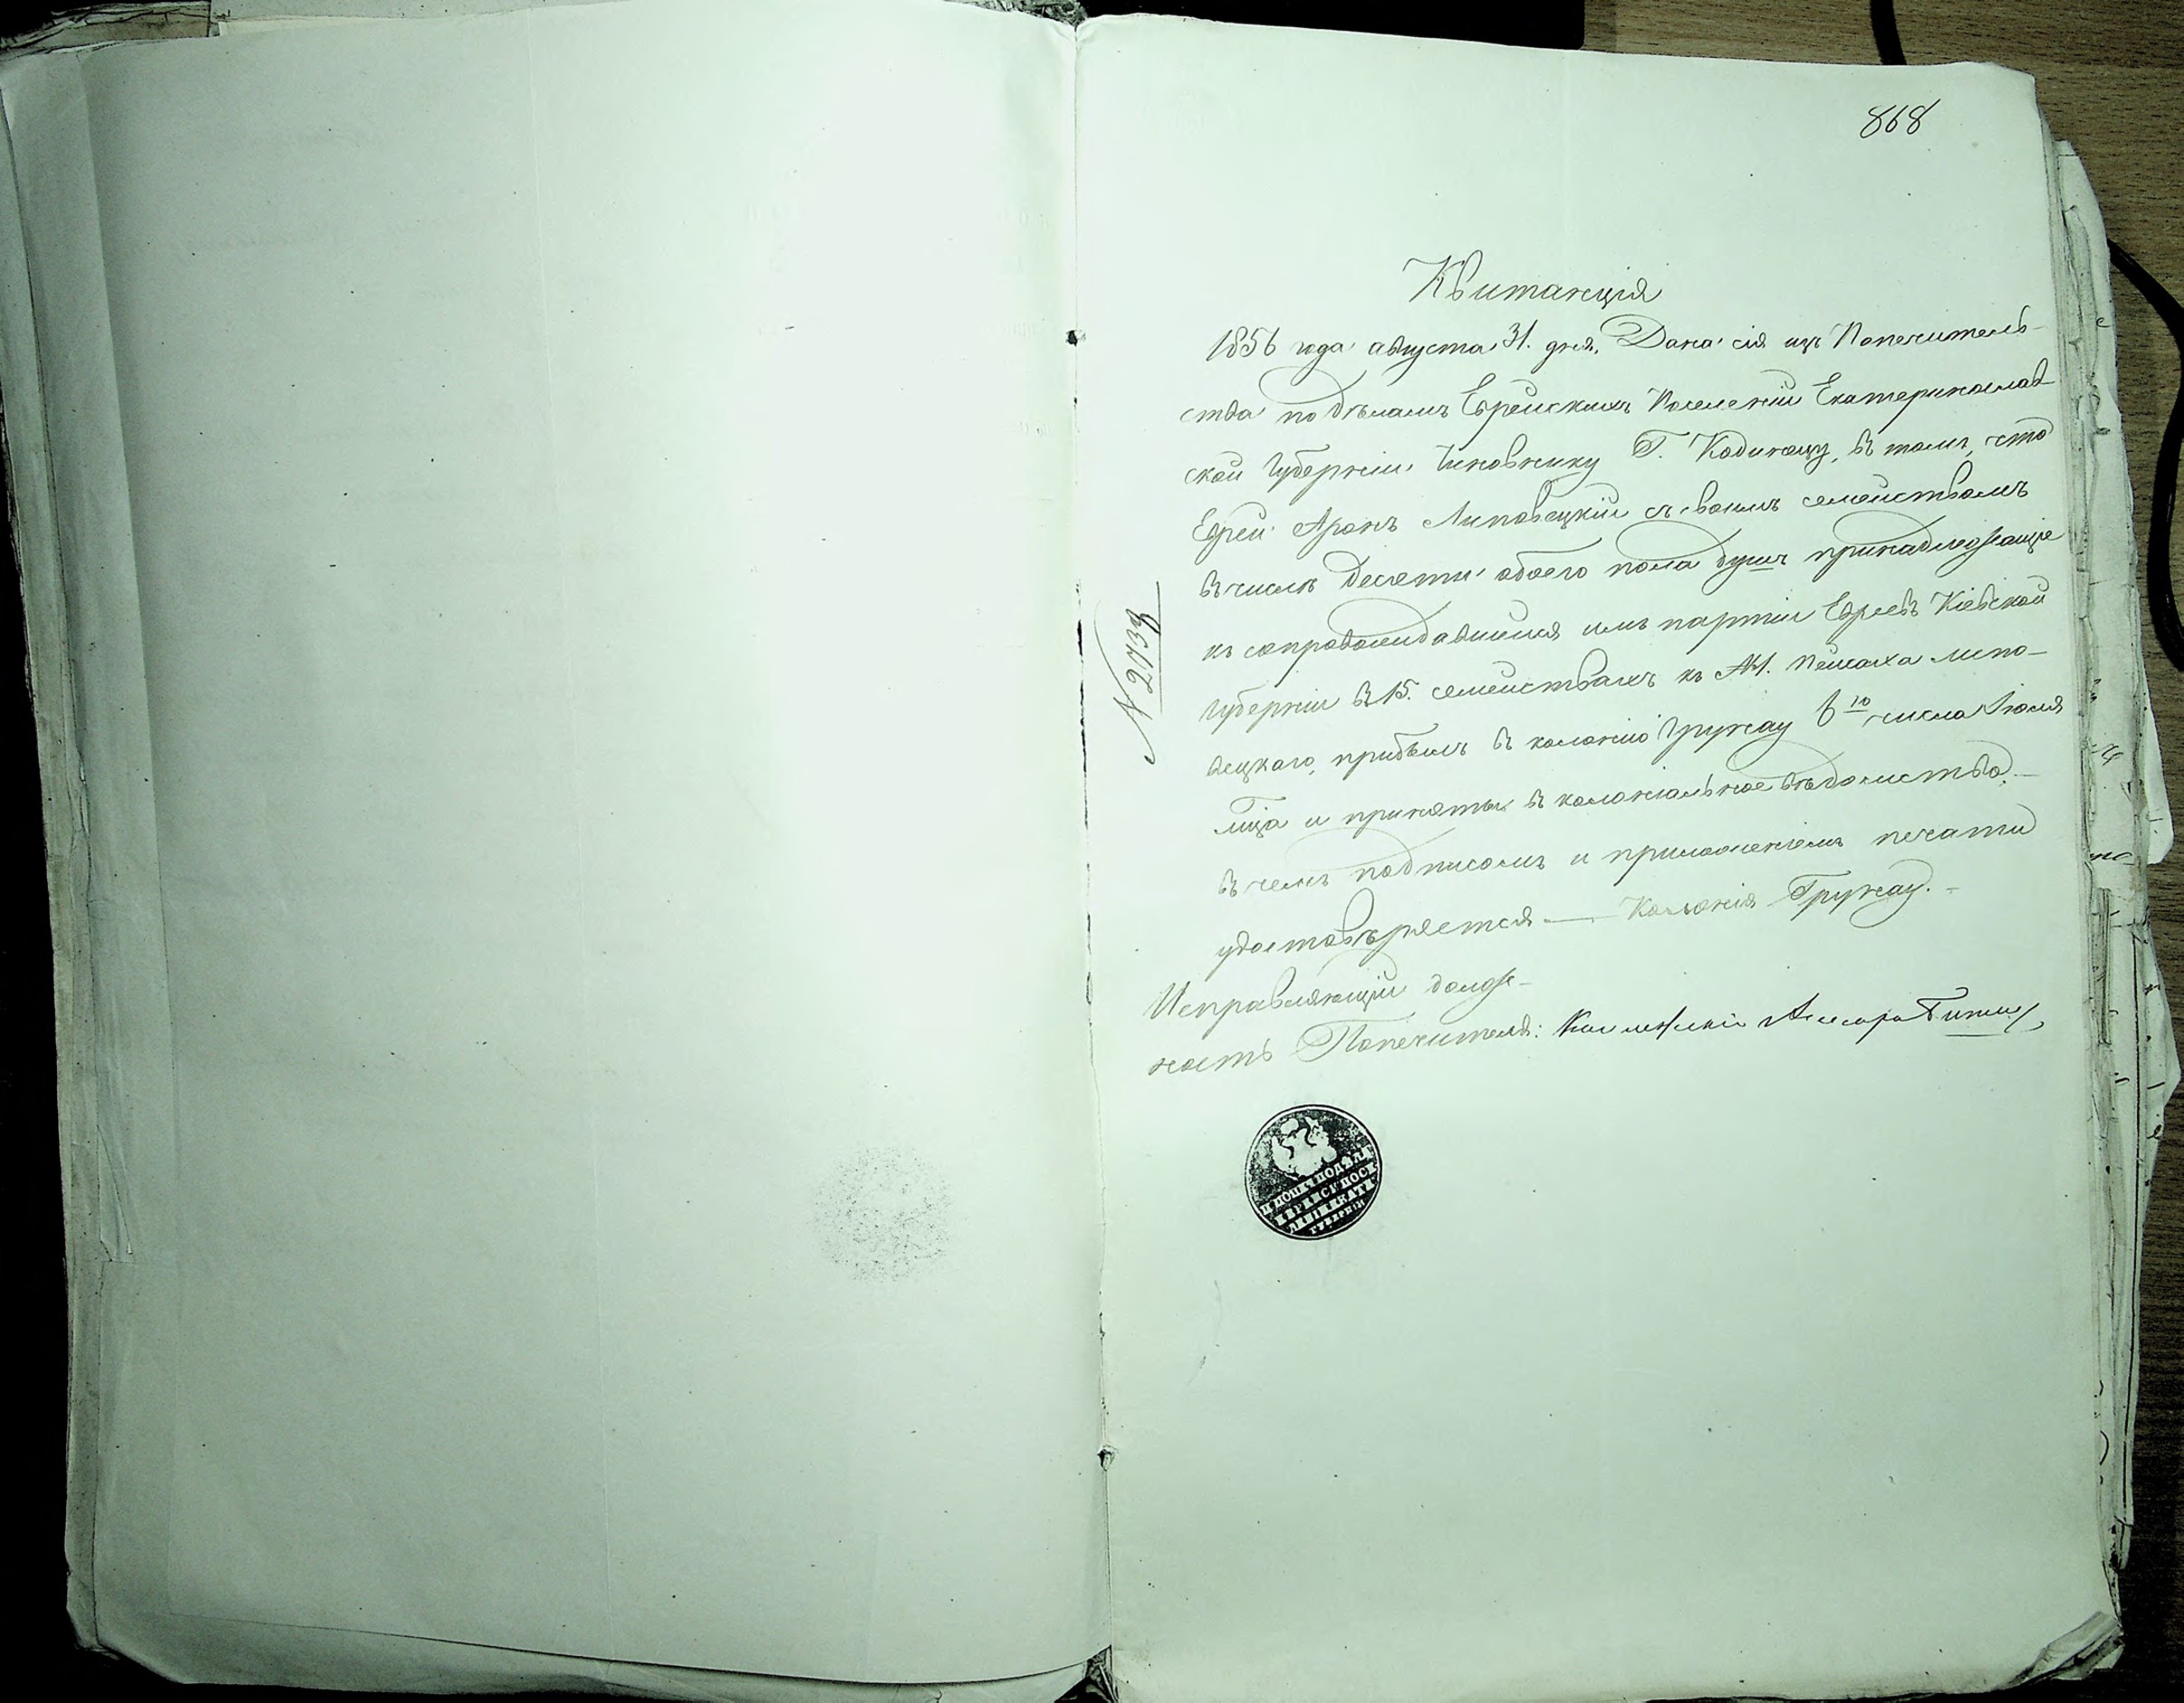 868
Квитанція
1856 года августа 31. дня, Дана сія изъ Попечитель-
ства по дѣламъ Еврейскихъ Поселеній Екатеринослав-
ской Губерніи Чиновнику Г. Кодинцу, въ томъ, что
Еврей Аронъ Липовецкій съ своимъ семействомъ
въ числѣ десети обоего пола душъ принадлежащіе
къ сопровождавшейся имъ партіи Евреевъ Кіевской
Губерніи въ 15. семействахъ къ №1. Пейсаха Липо-
вецкаго, прибылъ въ колонію Грунау 6го числа Іюля
м-ца и приняты въ колоніальное вѣдомство,
въ чемъ подписомъ и приложеніемъ печати
удостовѣряется — Колонія Грунау. -
Исправляющій долж-
ность Попечителя: Коллежскій Ассесоръ
N 2739
ПОПЕЧ ПОДѢЛА
ЕВРЕЙСК ПОСЕ
ЛЕНІЙ ЕКАТЕ
ГУБЕРНІИ